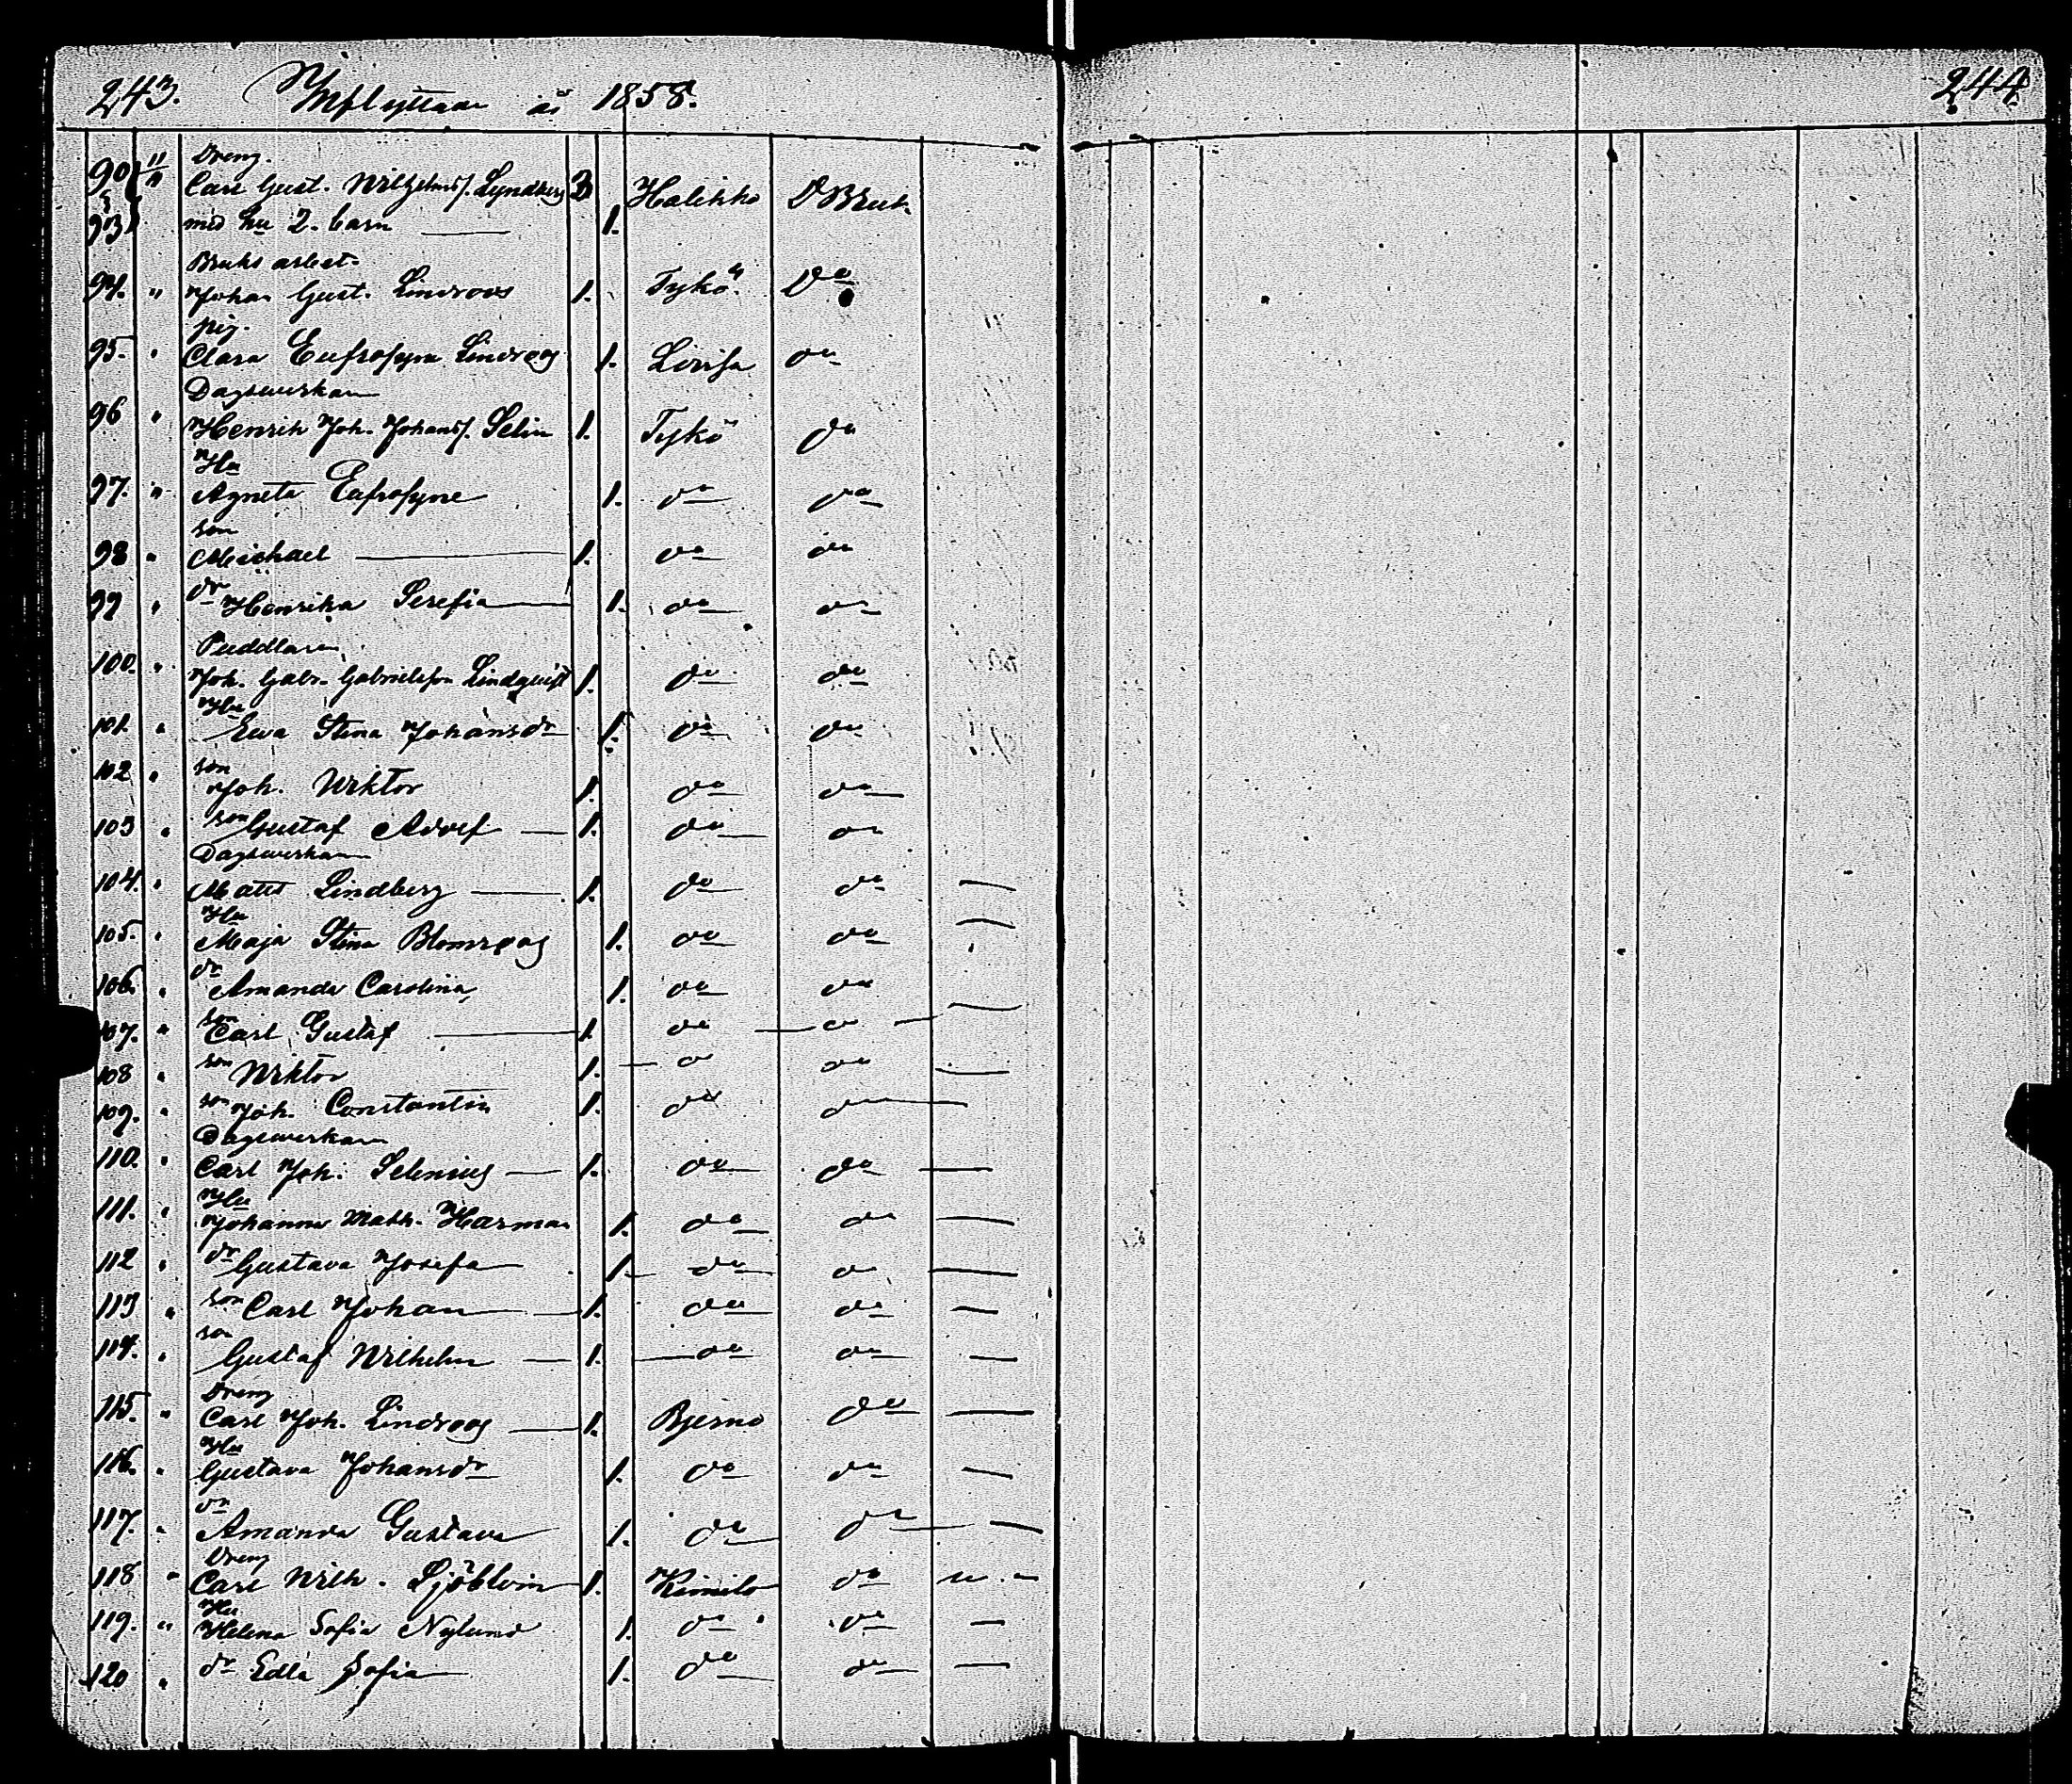 243. Inflyttade år 1858.
244
Dreng.
90 11/11 Carl Gust. Wilhelmss. Lyndberg 3 Halikko D Bruk.
93 med hu 2. barn 1.
Bruks arbet.
94. " Johan Gust. Lindroos 1. Tykö D:o
pig.
95. " Clara Eufrosyne Lindroos 1. Lovisa do
Dagsverkaren
96 " Henrik Joh. Johanss. Selin 1. Tykö do
Hu
97. " Agneta Eufrosyne 1. do do
son
98 " Michael 1. do do
99 " dr Henrika Serefia 1. do do
Puddlaren
100. " Joh. Gabr. Gabrielsson Lindqvist 1. do do
Hu
101. " Ewa Stina Johansdr 1. do do
son
102 " Joh. Wiktor 1. do do
103 " son Gustaf Adolf 1. do do
Dagsverkaren
104. " Matts Lindberg 1. do do —
Hu
105. " Maja Stina Blomroos 1. do do —
dr
106. " Amanda Carolina 1. do do —
107. " son Carl Gustaf 1. do do —
108 " son Wiktor 1. do do —
109. " son Joh. Constantin 1. do do —
Dagsverkaren
110. " Carl Joh. Selenius 1. do do —
Hu
111. " Johanna Math. Harman 1. do do —
112 " dr Gustava Josefa 1. do do —
113 " son Carl Johan 1. do do —
son
114. " Gustaf Wilhelm 1. do do —
Dreng
115. " Carl Joh. Lindroos 1. Bjerno do —
Hu
116. " Gustava Johansdr 1. do do —
dr
117. " Amanda Gustava 1. do do —
Dreng
118 " Carl Wilh. Sjöblom 1. Kimito do
Hu
119. " Helena Sofia Nylund 1. do do —
120 " dr Edla Sofia 1. do do —